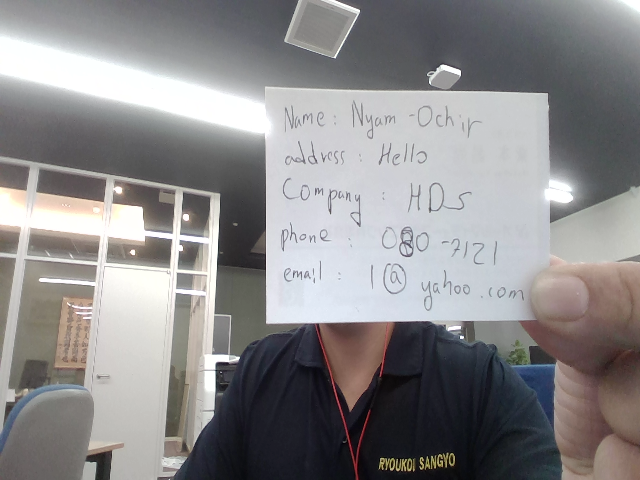 Name: Nyam-Ochir
address: Hello
Company: HDS
phone: 080-7121
email: 1@yahoo.com
RYOUKOU SANGYO